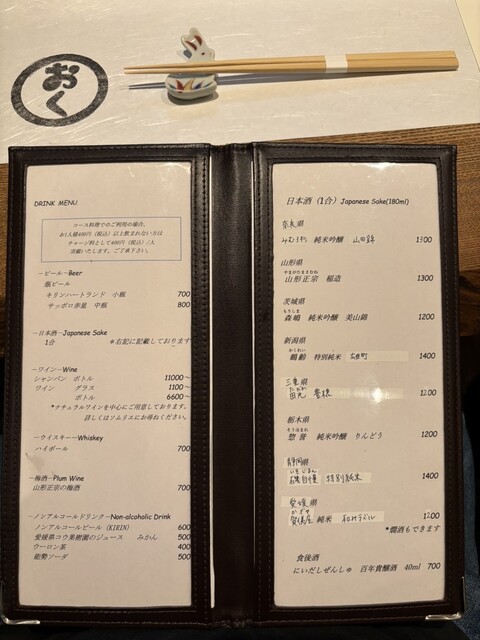 おく
DRINK MENU
コース料理でのご利用の場合、
お1人様400円（税込）以上飲まれない方は
チャージ料として400円（税込）/1人
頂戴いたします。ご了承下さい。
－ビール－Beer
瓶ビール
キリンハートランド 小瓶 700
サッポロ赤星 中瓶 800
－日本酒－Japanese Sake
1合 ＊右記に記載しております
－ワイン－Wine
シャンパン ボトル 11000～
ワイン グラス 1100～
ボトル 6600～
＊ナチュラルワインを中心にご用意しております。
詳しくはソムリエにお尋ねください。
－ウイスキー－Whiskey
ハイボール 700
－梅酒－Plum Wine
山形正宗の梅酒 700
－ノンアルコールドリンク－Non-alcoholic Drink
ノンアルコールビール (KIRIN) 600
愛媛県コウ果樹園のジュース みかん 500
ウーロン茶 400
能勢ソーダ 500
日本酒（1合）Japanese Sake(180ml)
奈良県
みむろ杉 純米吟醸 山田錦 1300
山形県
やまがたまさむね
山形正宗 稲造 1300
茨城県
もりしま
森嶋 純米吟醸 美山錦 1200
新潟県
かくれい
鶴齢 特別純米 1400
三重県
たびか
田光 1200
栃木県
そうほまれ
惣誉 純米吟醸 りんどう 1200
静岡県
いそじまん
磯自慢 特別純米 1400
愛媛県
賀儀屋 純米 1200
＊燗酒もできます
食後酒
にいだしぜんしゅ 百年貴醸酒 40ml 700